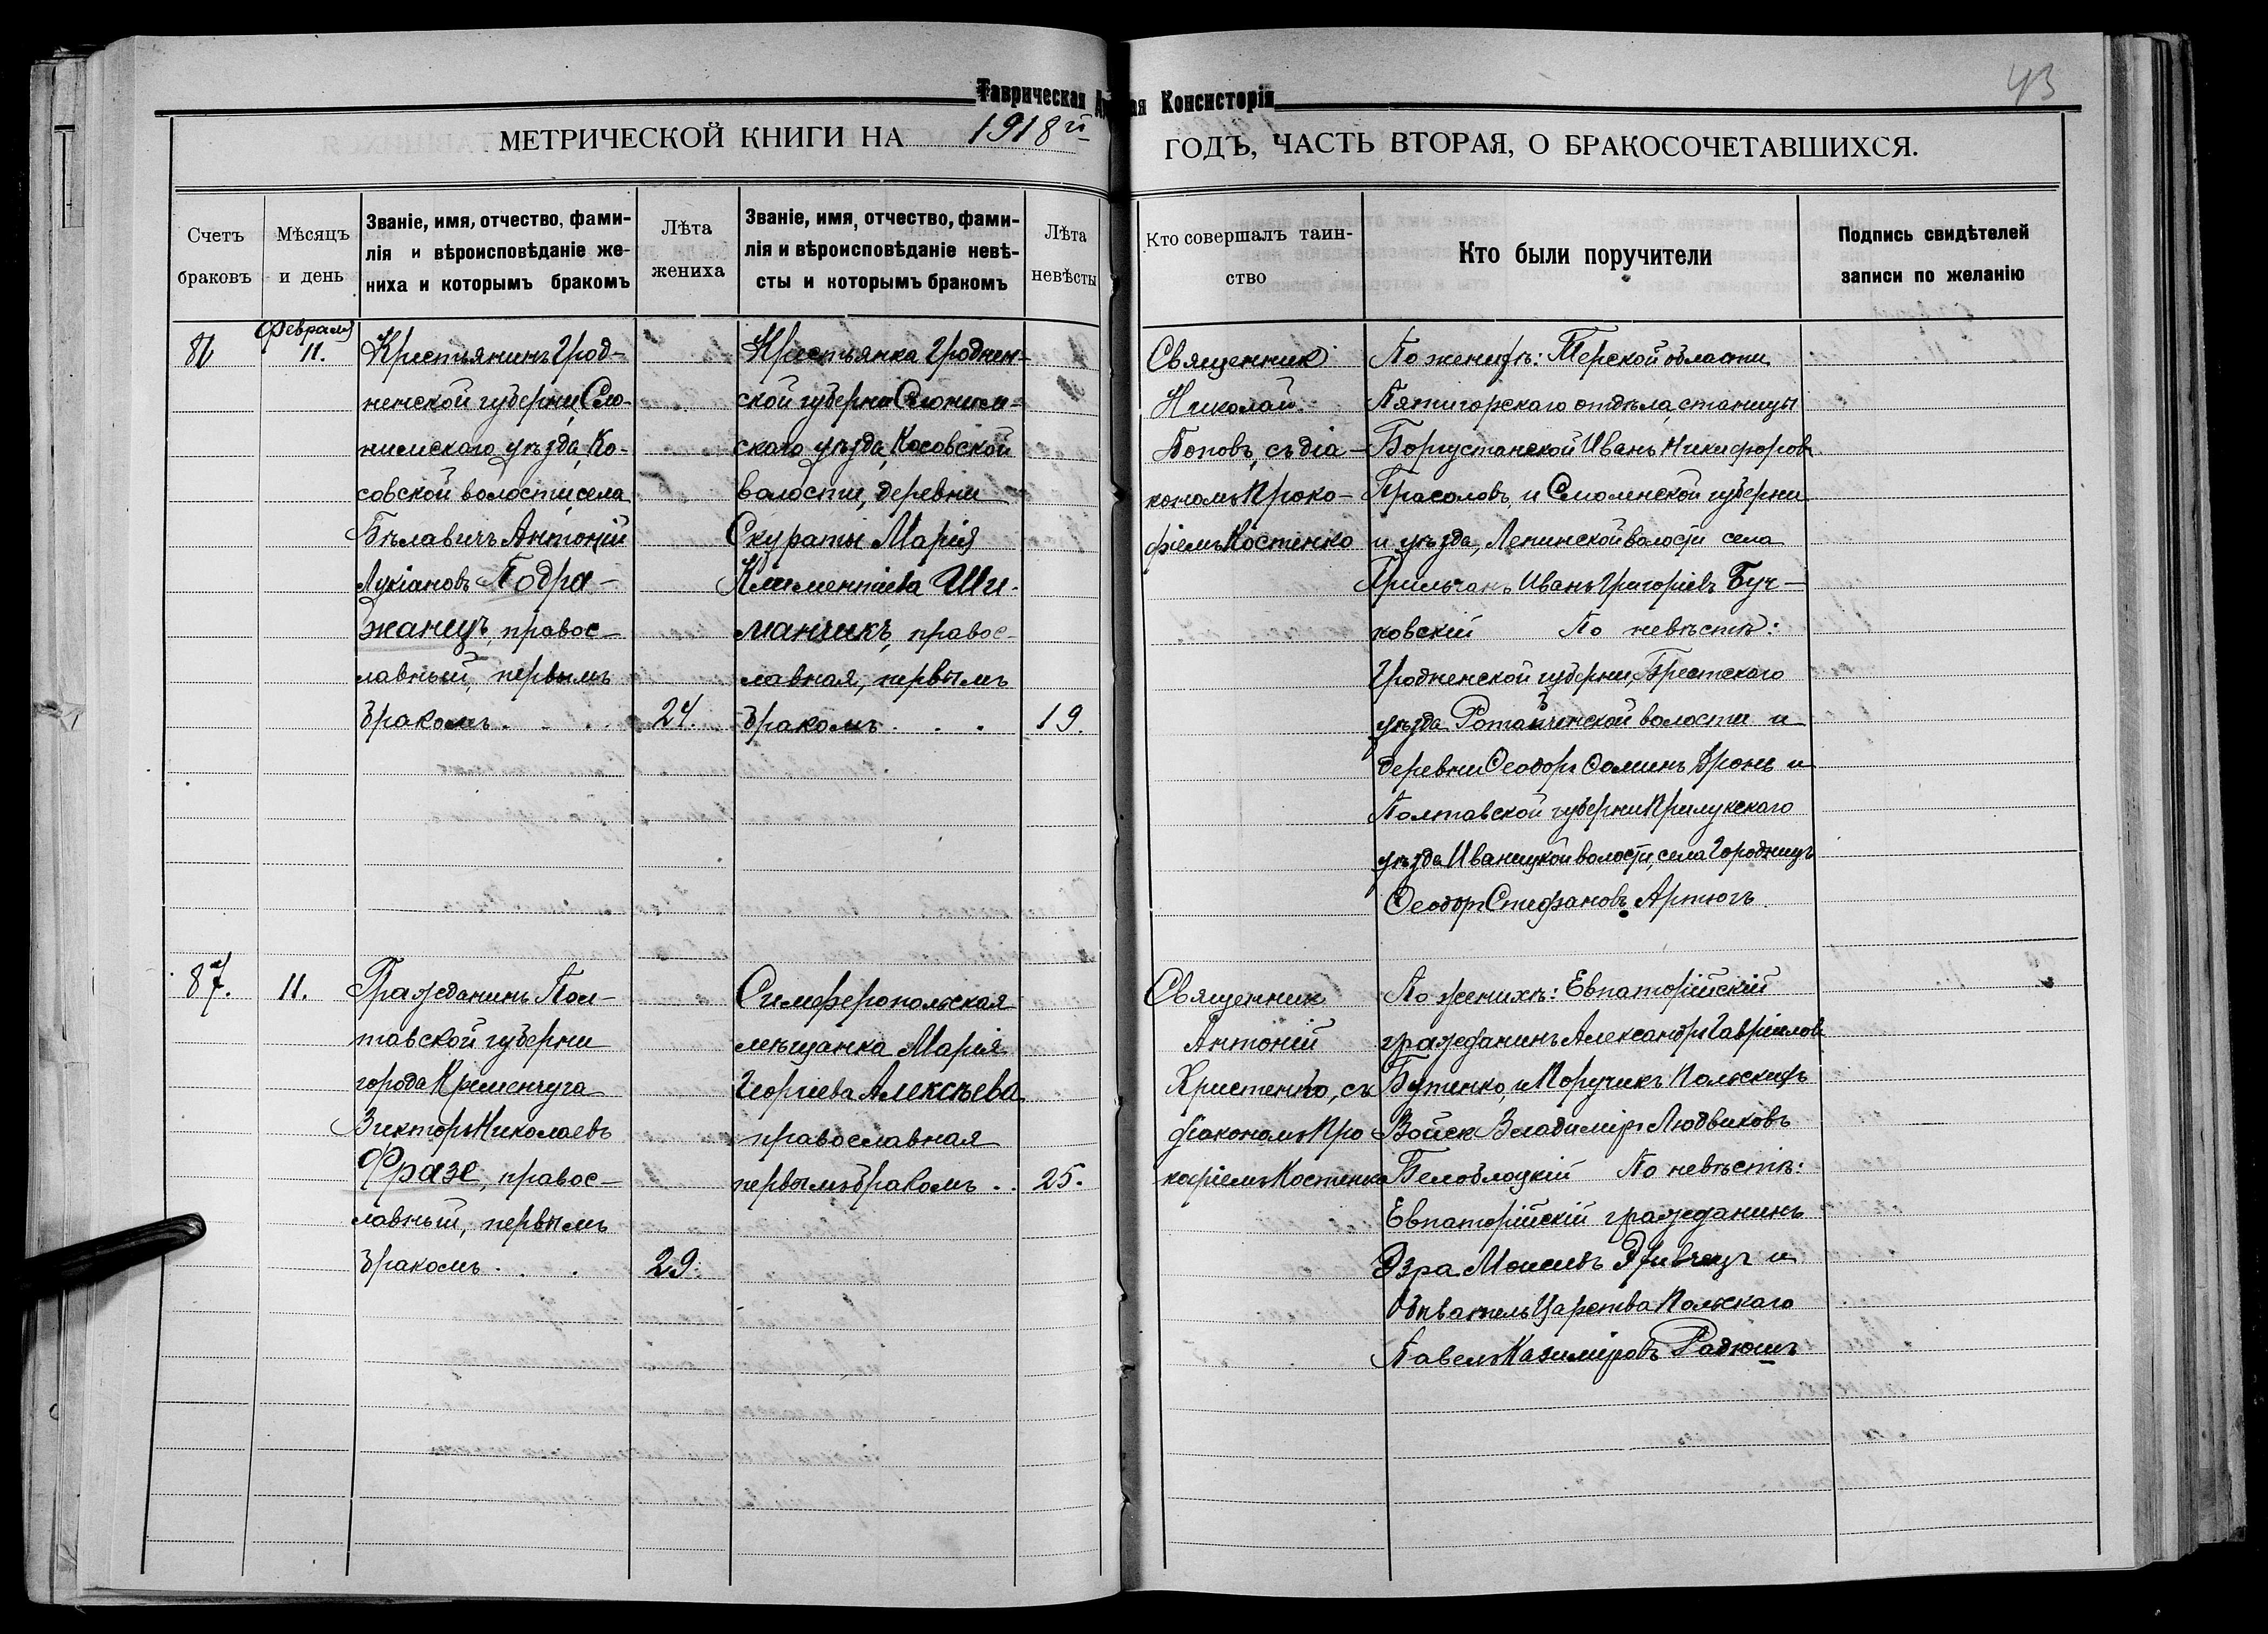 Таврическая
ая Консисторія
43
МЕТРИЧЕСКОЙ КНИГИ НА 1918й
ГОДЪ, ЧАСТЬ ВТОРАЯ, О БРАКОСОЧЕТАВШИХСЯ.
Счетъ
браковъ
Мѣсяцъ
и день
Званіе, имя, отчество, фами-
лія и вѣроисповѣданіе же-
ниха и которымъ бракомъ
Лѣта
жениха
Званіе, имя, отчество, фами-
лія и вѣроисповѣданіе невѣ-
сты и которымъ бракомъ
Лѣта
невѣсты
Кто совершалъ таин-
ство
Кто были поручители
Подпись свидѣтелей
записи по желанію
86
Февраля
11.
Крестьянинъ Грод-
ненской губерни, Сло-
нимскаго уѣзда, Ко-
совской волости, села
Бѣлавичъ Антоній
Лукіановъ Подра-
жанецъ, правос-
лавный, первымъ
бракомъ . . .
24.
Крестьянка Гроднен-
ской губерни Слоним-
скаго уѣзда, Косовской
волости, деревни
Скураты Марія
Климентіева Ши-
манчикъ, правос-
лавная, первымъ
бракомъ . . .
19.
Священник
Николай
Поповъ, съ діа-
кономъ Проко-
фіемъ Костенко
По женихѣ: Терской области
Пятигорскаго отдѣла, станицы
Боргустанской Иванъ Никифоровъ
Прасоловъ, и Смоленской губерни
и уѣзда, Лепинской волости села
Иванъ Григоріевъ Буч-
ковскій По невѣстѣ:
Гродненской губерни, Брестскаго
уѣзда волости и
деревни Ѳеодоръ Ѳоминъ Дронь и
Полтавской губерни Прилукскаго
уѣзда Иваницкой волости, села Городницъ
Ѳеодоръ Стефановъ Артюгъ.
87.
11.
Гражданинъ Пол-
тавской губерни
города Кременчуга
Викторъ Николаевъ
Фразе, правос-
лавный, первымъ
бракомъ . . .
29.
Симферопольская
мѣщанка Марія
Георгіева Алексѣева
православная
первымъ бракомъ . .
25.
Священник
Антоній
Христенко, съ
діакономъ Про
кофіемъ Костенко
По женихѣ: Евпаторійскій
гражданинъ Александръ Гавріиловъ
Бутенко, и Поручикъ Польскихъ
Войск Владиміръ Людвиковъ
Белоблоцкій По невѣстѣ:
Евпаторійскій гражданинъ
Эзра Моисеевъ и
Обыватель Царства Польскаго
Павелъ Казиміровъ Радюшъ